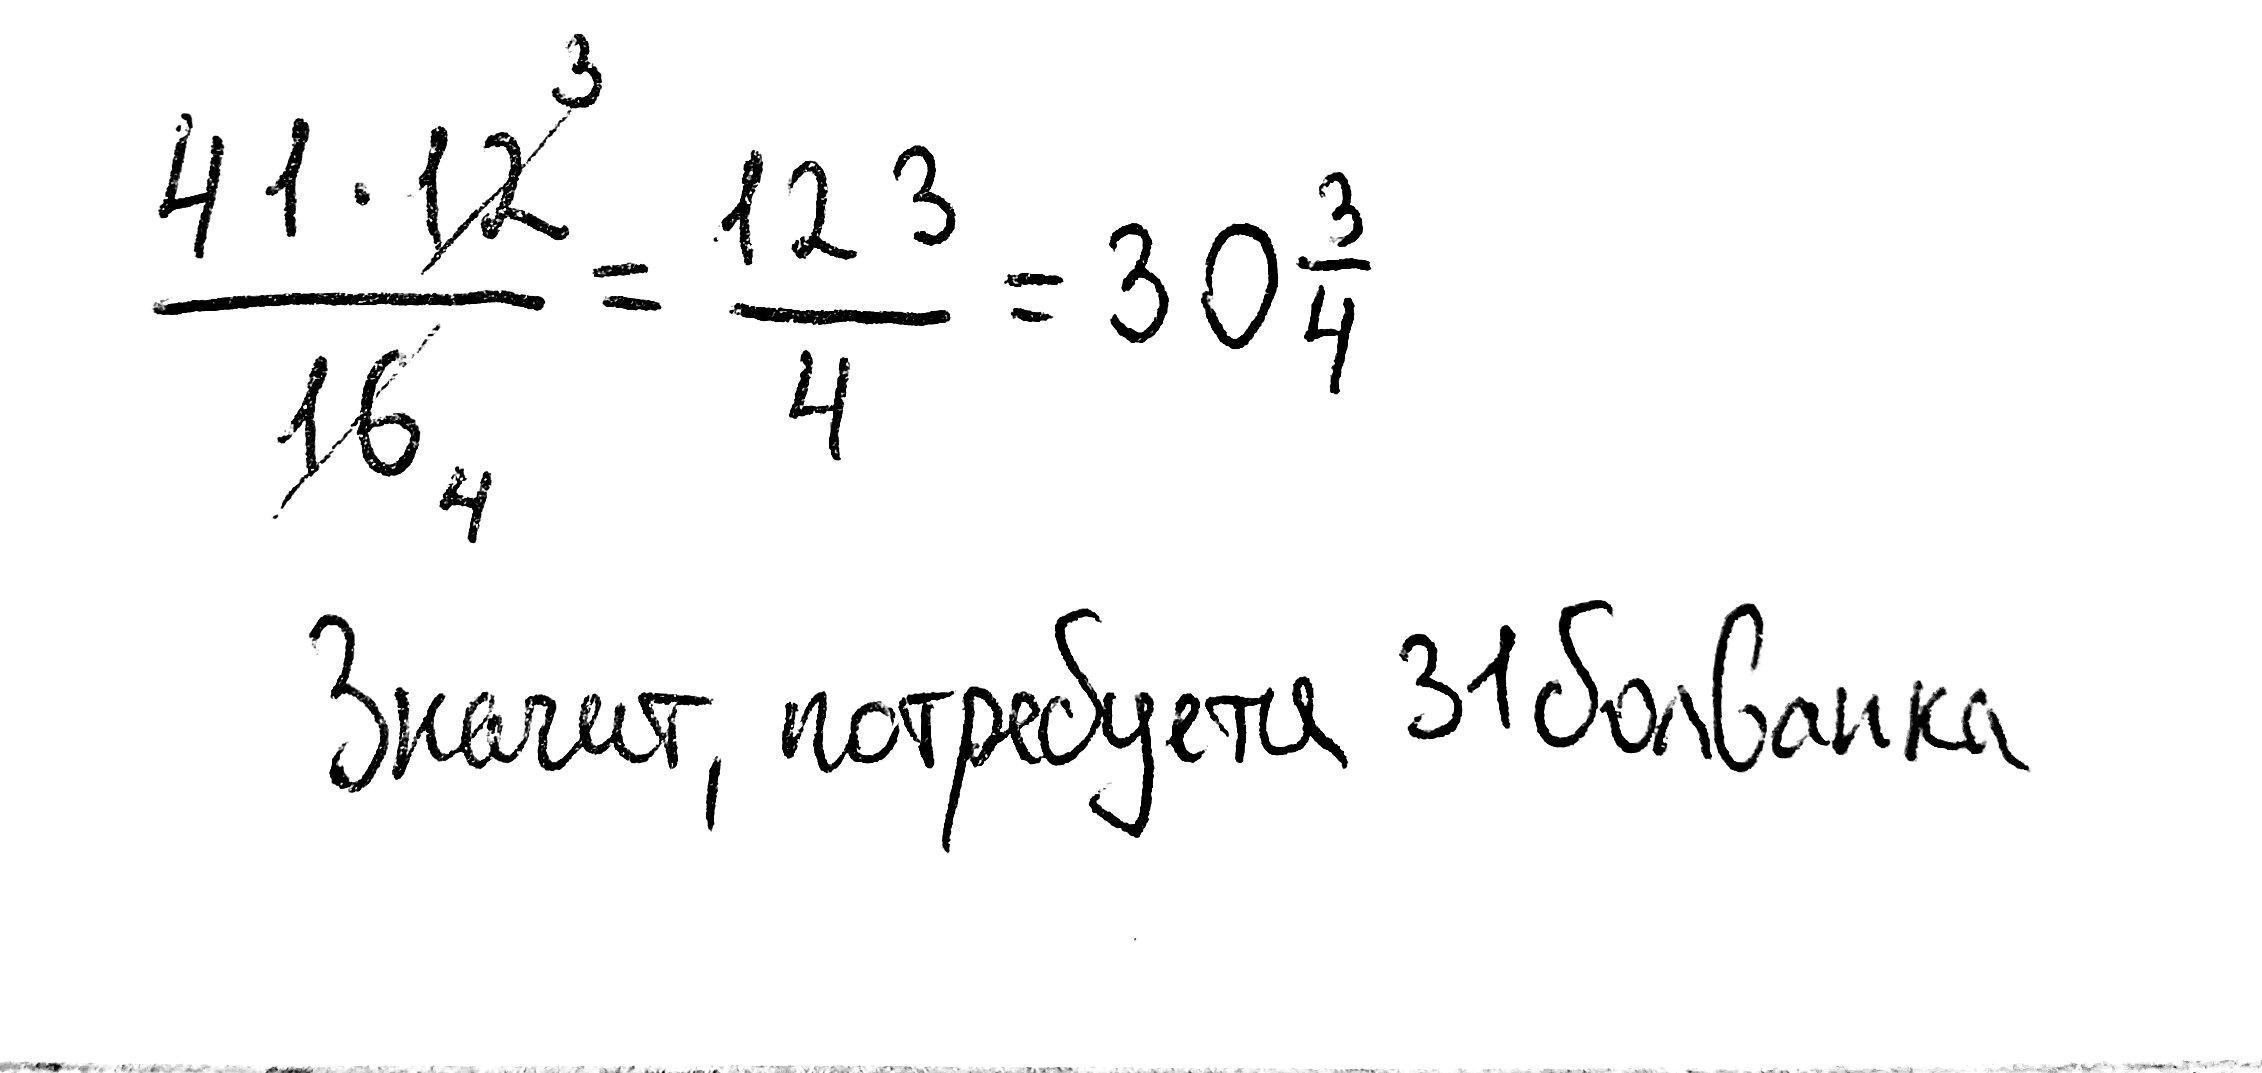 41·12/16 = 123/4 = 30 3/4
3
4
Значит, потребуется 31 болванка